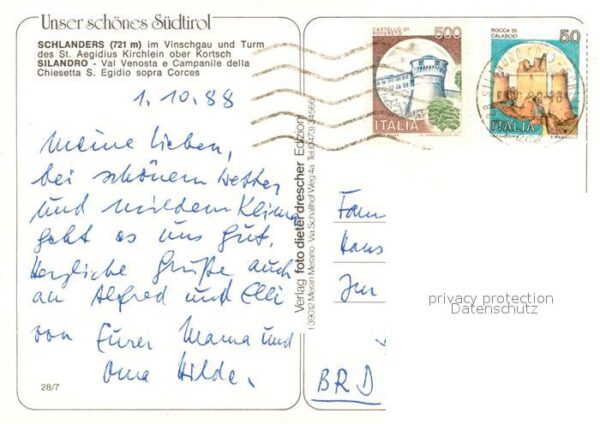 Unser schönes Südtirol
SCHLANDERS (721 m) im Vinschgau und Turm
des St. Aegidius Kirchlein ober Kortsch
SILANDRO - Val Venosta e Campanile della
Chiesetta S. Egidio sopra Corces
1.10.88
Meine Lieben,
bei schönem Wetter
und mildem Klima
geht es uns gut.
Herzliche Grüße auch
an Alfred und Elli
von Eurer Mama und
Oma Hilde.
28/7
Verlag foto dieter drescher Edizioni
I-39012 Meran Merano Via Schaffhof Weg 4a Tel.
CASTELLO DI
ROVERETO
500
ITALIA
ROCCA DI
CALASCIO
50
ITALIA
Fam
Hans
Im
BRD
privacy protection
Datenschutz